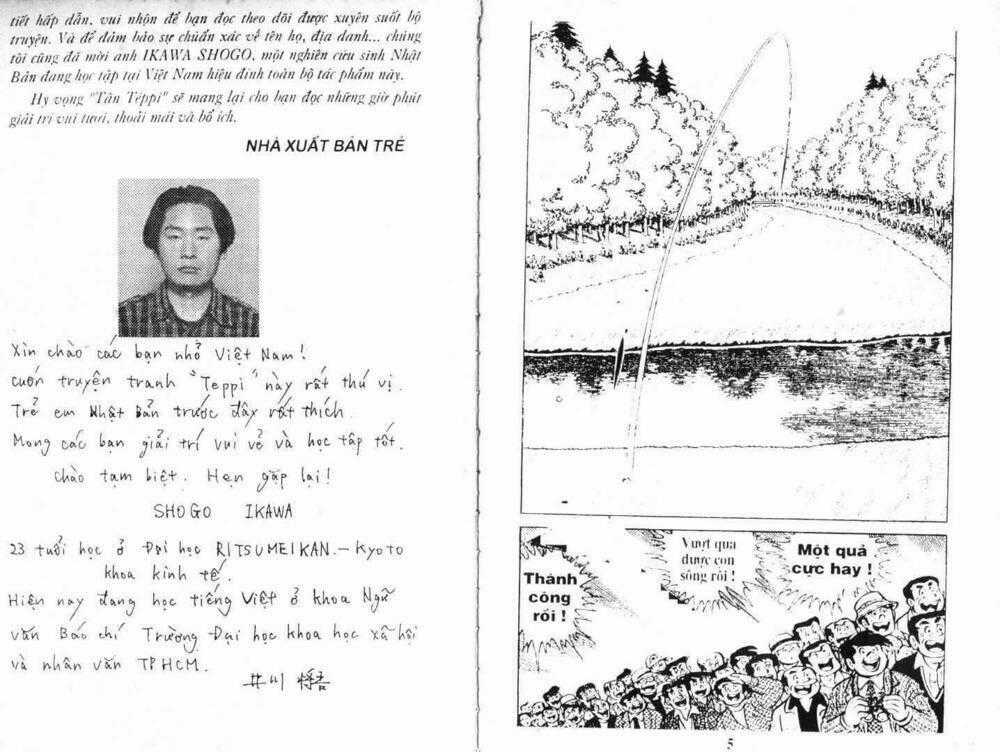 tiết hấp dẫn, vui nhộn để bạn đọc theo dõi được xuyên suốt bộ
truyện. Và để đảm bảo sự chuẩn xác về tên họ, địa danh... chúng
tôi cũng đã mời anh IKAWA SHOGO, một nghiên cứu sinh Nhật
Bản đang học tập tại Việt Nam hiệu đính toàn bộ tác phẩm này.
Hy vọng "Tân Teppi" sẽ mang lại cho bạn đọc những giờ phút
giải trí vui tươi, thoải mái và bổ ích.
NHÀ XUẤT BẢN TRẺ
Xin chào các bạn nhỏ Việt Nam!
cuốn truyện tranh "Teppi" này rất thú vị.
Trẻ em Nhật Bản trước đây rất thích.
Mong các bạn giải trí vui vẻ và học tập tốt.
chào tạm biệt. Hẹn gặp lại!
SHOGO IKAWA
23 tuổi học ở Đại học RITSUMEIKAN.-KYOTO
khoa kinh tế.
Hiện nay đang học tiếng Việt ở khoa Ngữ
văn Báo chí Trường Đại học khoa học xã hội
và nhân văn TPHCM.
井川 将吾
Thành
công
rồi !
Vượt qua
được con
sông rồi !
Một quả
cực hay !
5